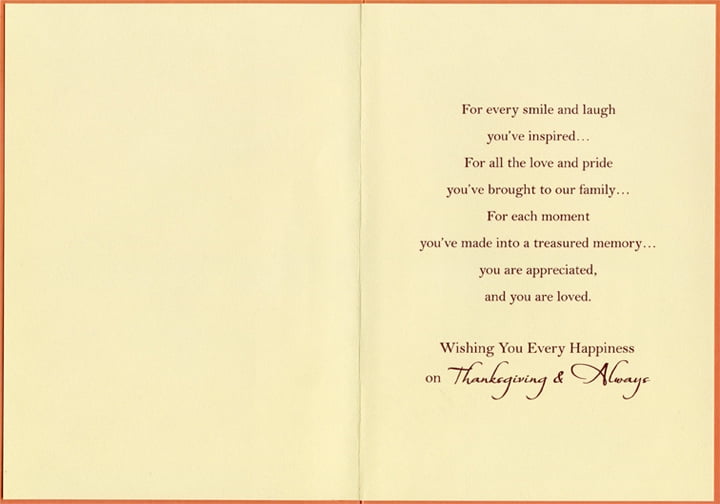 For every smile and laugh
you've inspired...
For all the love and pride
you've brought to our family...
For each moment
you've made into a treasured memory...
you are appreciated,
and you are loved.
Wishing You Every Happiness
on Thanksgiving & Always